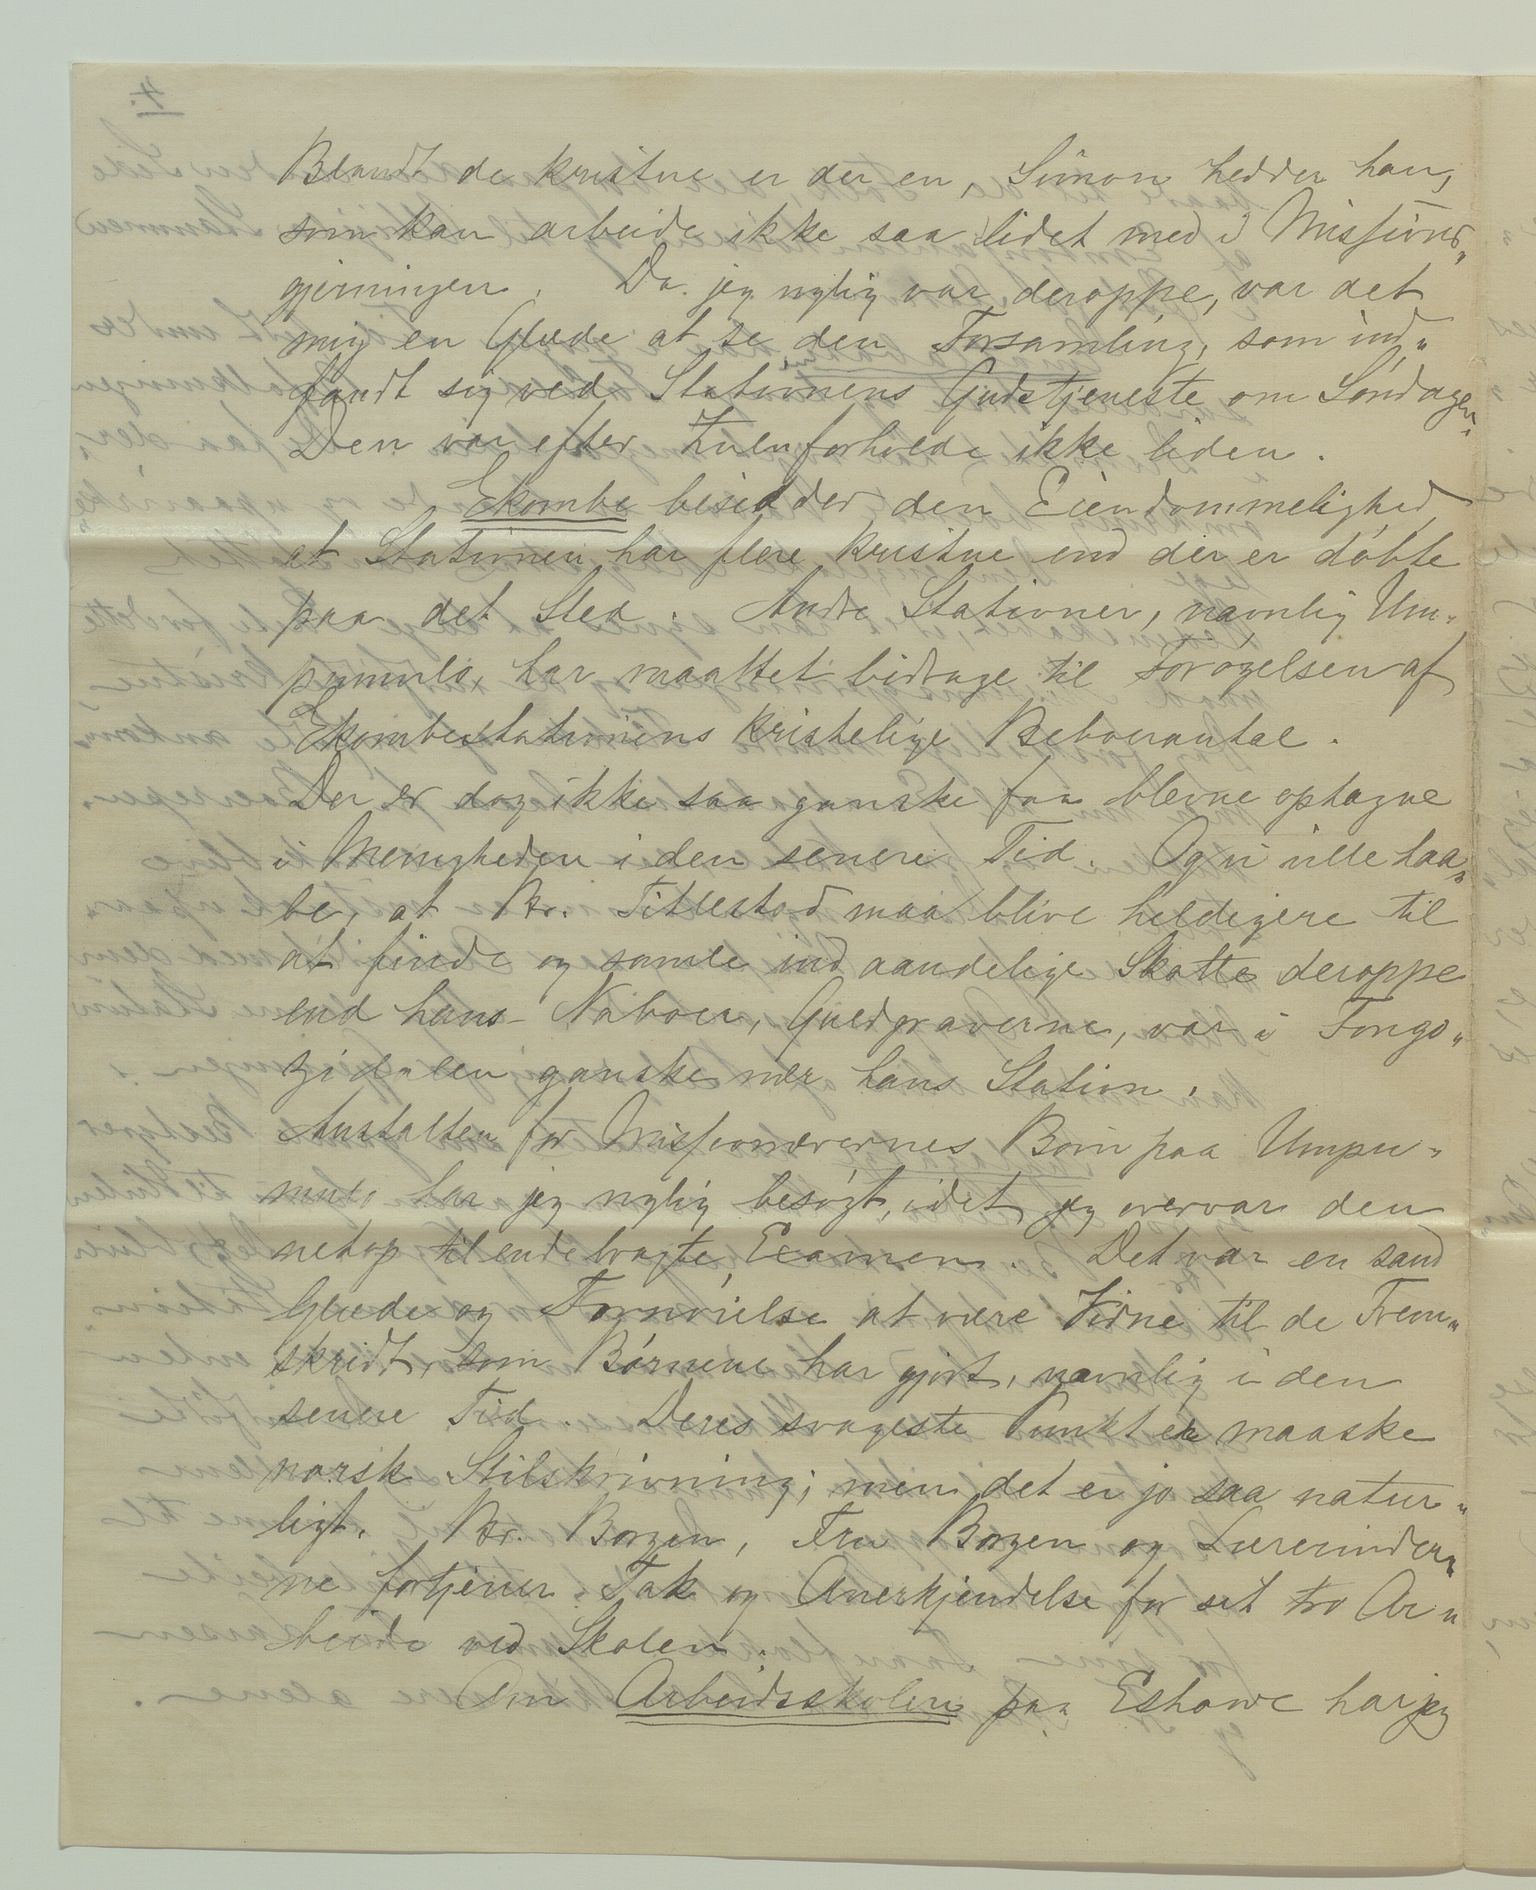 Blandt de kristne er der en, Simon hedder han,
som kan arbeide ikke saa lidet med i Missions„
gjerningen. Da jeg nylig var deroppe, var det
mig en Glæde at se den Forsamling, som ind„
fandt sig ved Stationens Gudstjeneste om Søndagen.
Den var efter Zuluforholde ikke liden.
Ekombe besidder den Eiendommelighed
at Stationen har flere kristne end der er døbte
paa det Sted. Andre Stationer, navnlig Um„
pumulo, har maattet bidrage til Forøgelsen af
Ekombestationens kristelige Beboerantal.
Der er dog ikke saa ganske faa blevne optagne
i Menigheden i den senere Tid. Og vi ville haa„
be, at Br. Titlestad maa blive heldigere til
at finde og samle ind aandelige Skatte deroppe
end hans Naboer, Guldgraverne, var i Fongo„
zidalen ganske nær hans Station.
Anstalten for Missionærernes Børn paa Umpu„
mulo har jeg nylig besøgt, idet jeg overvar den
netop tilendebragte Examen. Det var en sand
Glæde og Fornøielse at være Vidne til de Frem„
skridt, som Børnene har gjort, navnlig i den
senere Tid. Deres svageste Punkt er maaske
norsk Stilskrivning; men det er jo saa natur„
ligt. Br. Borgen, Fru Borgen og Lærerinder„
ne fortjener Tak og Anerkjendelse for sit tro Ar„
beide ved Skolen.
Om Arbeidsskolen paa Eshowe har jeg